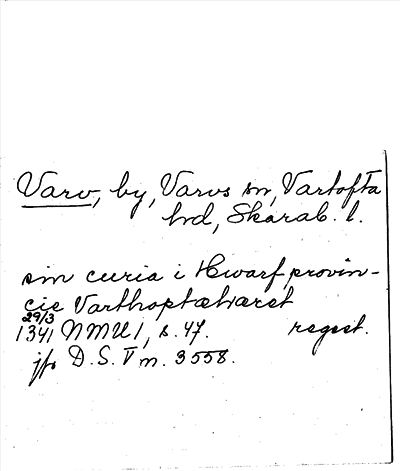 Varv, by, Varvs sn, Vartofta
hd, Skarab. l.
sin curia i Hwarf, provin-
cie Varthoptæhæret
29/3
1341 NMU 1, s. 47. regest.
jfr D.S. V nr. 3558.